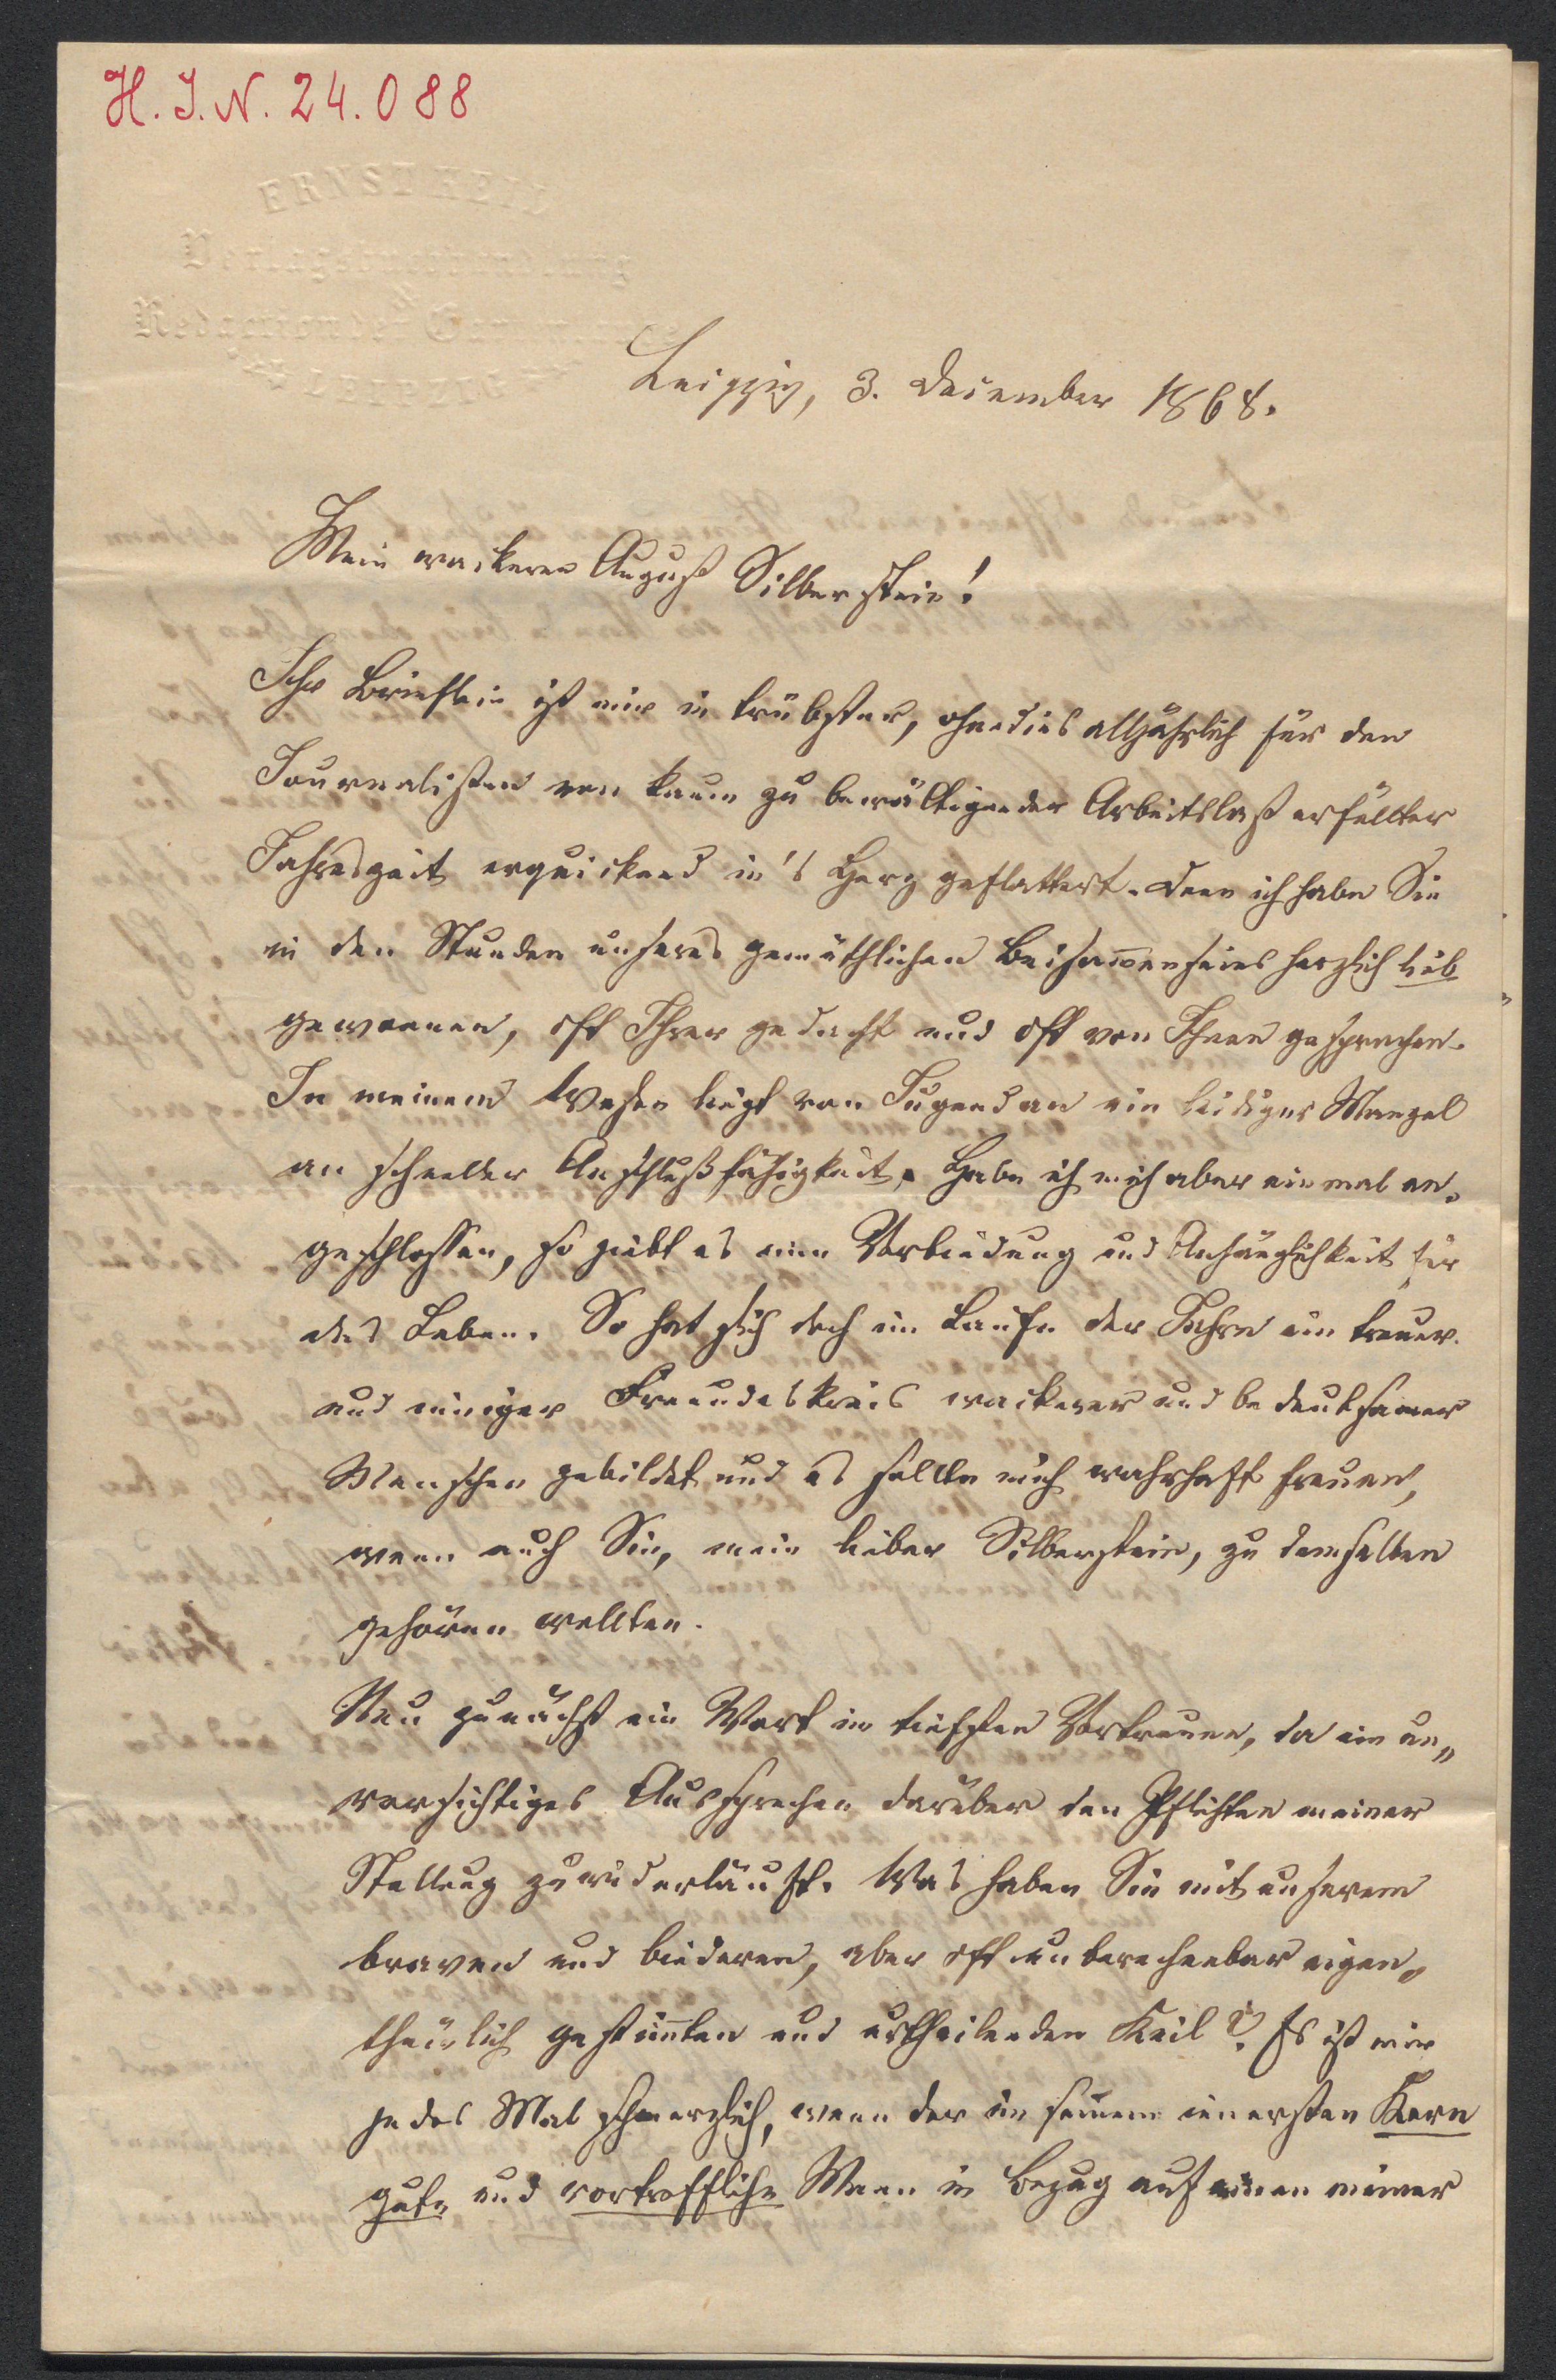 H. I. N. 24.088
ERNST KEIL
Verlagsbuchhandlung
&
Redaction der Gartenlaube
LEIPZIG
Leipzig, 3. December 1868.
Mein wackerer August Silberstein!
Ihr Brieflein ist mir in trübster, ohnedies alljährlich für den
Journalisten von kaum zu bewältigender Arbeitslast erfüllter
Jahreszeit erquickend in's Herz geflattert. Denn ich habe Sie
in den Stunden unseres gemüthlichen Beisam̅enseins herzlich lieb
gewonnen, oft Ihrer gedacht und oft von Ihnen gesprochen.
In meinem Wesen liegt von Jugend an ein leidiger Mangel
an schneller Anschlußfähigkeit. Habe ich mich aber einmal an-
geschlossen, so giebt es eine Verbindung und Anhänglichkeit für
das Leben. So hat sich doch im Laufe der Jahre ein treuer
und inniger Freundeskreis wackerer und bedeutsamer
Menschen gebildet und es sollte mich wahrhaft freuen,
wenn auch Sie, mein lieber Silberstein, zu demselben
gehören wollten.
Nun zunächst ein Wort in tiefstem Vertrauen, da ein un-
vorsichtiges Aussprechen darüber den Pflichten meiner
Stellung zuwiderläuft. Was haben Sie mit unserem
braven und biederen, aber oft unberechenbar eigen-
thümlich gestim̅ten und urtheilenden Keil? Es ist mir
jedes Mal schmerzlich, wenn der in seinem innersten Kern
gute und vortreffliche Mann in Bezug auf einen meiner